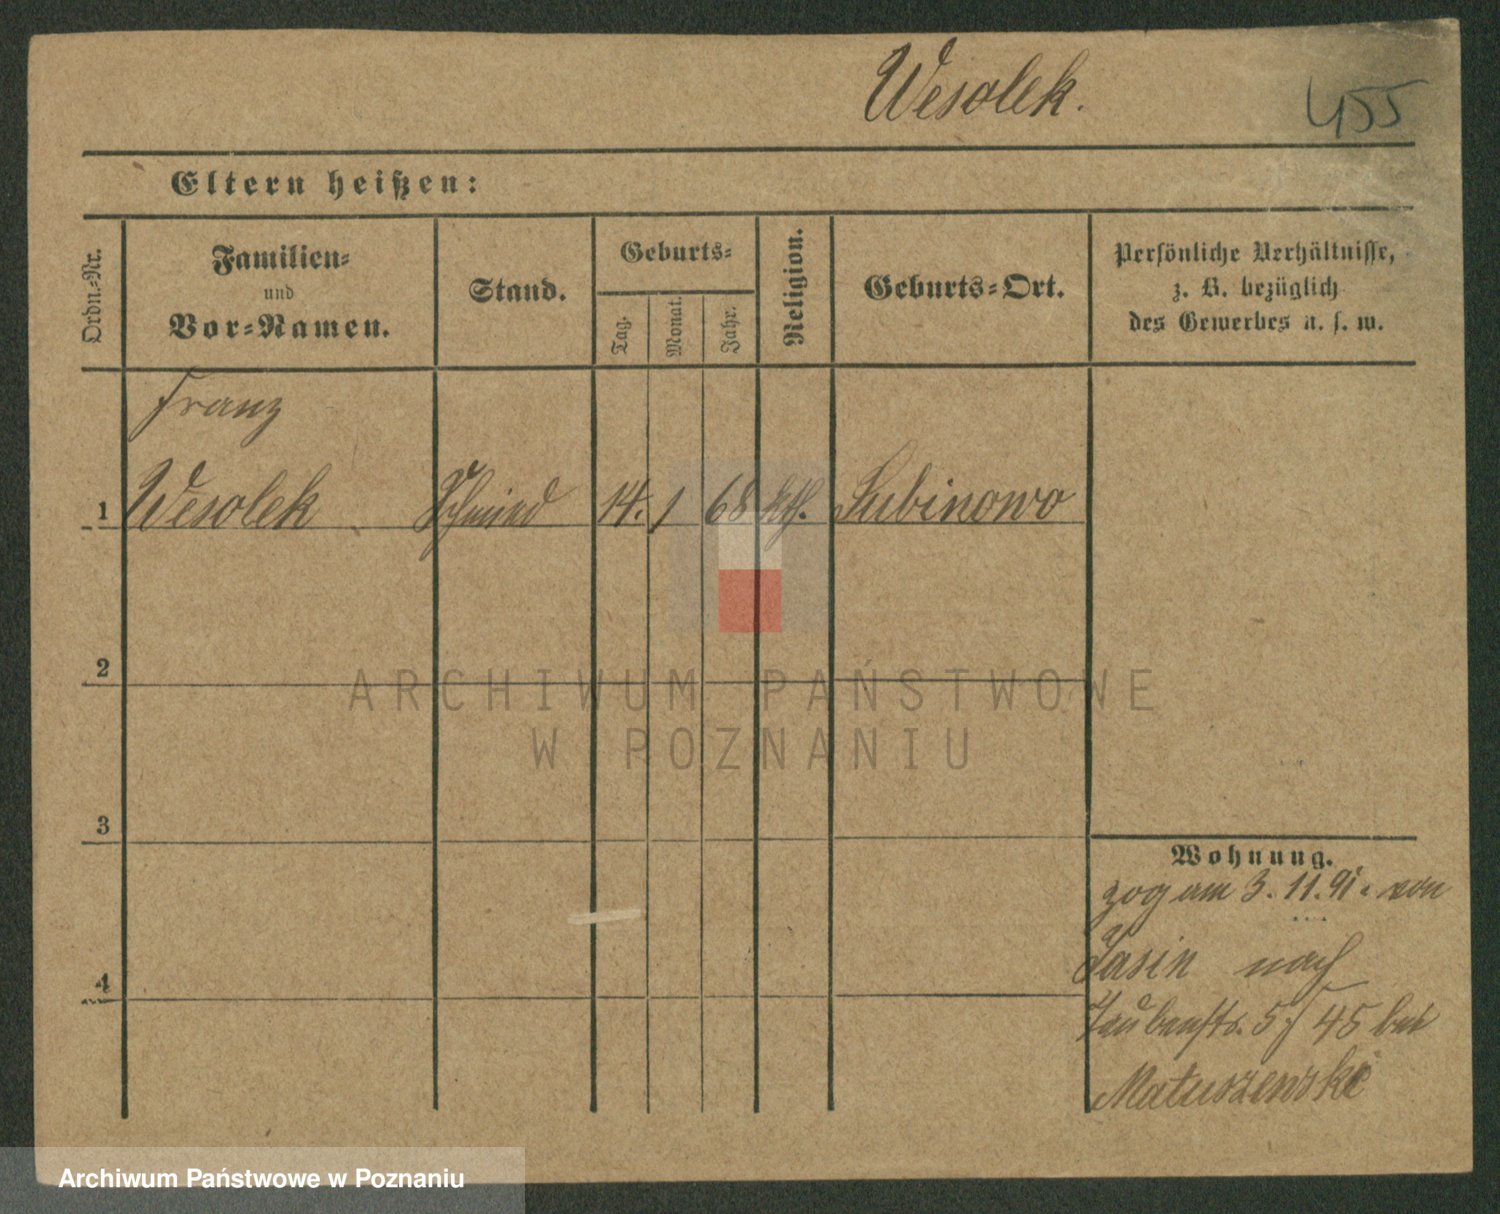 Wesolek.
455
Eltern heißen:
Ordn.-Nr.
Familien-
und
Vor-Namen.
Stand.
Geburts-
Tag.
Monat.
Jahr.
Religion.
Geburts-Ort.
Persönliche Verhältnisse,
z. B. bezüglich
des Gewerbes u. s. w.
Franz
1 Wesolek Schmied 14. 1 68 kth. Lubinowo
2
3
4
Wohnung.
zog am 3. 11. 91. von
Jasin nach
Taubenstr. 5 / 45 bei
Matuszewski
ARCHIWUM PAŃSTWOWE
W POZNANIU
Archiwum Państwowe w Poznaniu